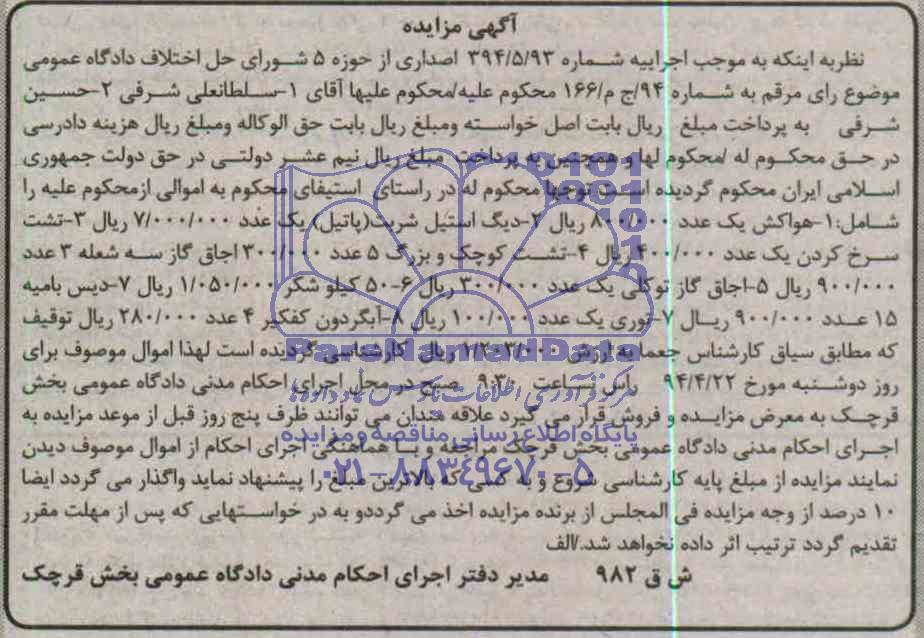 آگهی مزایده
نظربه اینکه به موجب اجراییه شماره ۳۹۴/۵/۹۳ اصداری از حوزه ۵ شورای حل اختلاف دادگاه عمومی
موضوع رای مرقم به شماره ۹۴/ج م/۱۶۶ محکوم علیه/محکوم علیها آقای ۱-سلطانعلی شرفی ۲-حسین
شرفی به پرداخت مبلغ ریال بابت اصل خواسته ومبلغ ریال بابت حق الوکاله ومبلغ ریال هزینه دادرسی
در حق محکوم له /محکوم لها و همچنین به پرداخت مبلغ ریال نیم عشر دولتی در حق دولت جمهوری
اسلامی ایران محکوم گردیده است توجها محکوم له در راستای استیفای محکوم به اموالی ازمحکوم علیه را
شامل:۱-هواکش یک عدد ۸۰۰/۰۰۰ ریال ۲-دیگ استیل شربت(پاتیل) یک عدد ۷/۰۰۰/۰۰۰ ریال ۳-تشت
سرخ کردن یک عدد ۴۰۰/۰۰۰ ریال ۴-تشت کوچک و بزرگ ۵ عدد ۳۰۰/۰۰۰ اجاق گاز سه شعله ۳ عدد
۹۰۰/۰۰۰ ریال ۵-اجاق گاز توکلی یک عدد ۳۰۰/۰۰۰ ریال ۶-۵۰ کیلو شکر ۱/۰۵۰/۰۰۰ ریال ۷-دیس بامیه
۱۵ عدد ۹۰۰/۰۰۰ ریال ۷-توری یک عدد ۱۰۰/۰۰۰ ریال ۸-آبگردون کفگیر ۴ عدد ۲۸۰/۰۰۰ ریال توقیف
که مطابق سیاق کارشناس جمعا به ارزش ریال کارشناسی گردیده است لهذا اموال موصوف برای
روز دوشنبه مورخ ۹۴/۴/۲۲ راس ساعت ۹:۳۰ صبح در محل اجرای احکام مدنی دادگاه عمومی بخش
قرچک به معرض مزایده و فروش قرار می گیرد علاقه مندان می توانند ظرف پنج روز قبل از موعد مزایده به
اجرای احکام مدنی دادگاه عمومی بخش قرچک مراجعه و با هماهنگی اجرای احکام از اموال موصوف دیدن
نمایند مزایده از مبلغ پایه کارشناسی شروع و به کسی که بالاترین مبلغ را پیشنهاد نماید واگذار می گردد ایضا
۱۰ درصد از وجه مزایده فی المجلس از برنده مزایده اخذ می گرددو به در خواستهایی که پس از مهلت مقرر
تقدیم گردد ترتیب اثر داده نخواهد شد./الف
ش ق ۹۸۲ مدیر دفتر اجرای احکام مدنی دادگاه عمومی بخش قرچک
ParsNamadData
مرکز فرآوری اطلاعات پارس نماد داده‌ها
پایگاه اطلاع رسانی مناقصه و مزایده
۰۲۱-۸۸۳۴۹۶۷۰-۵